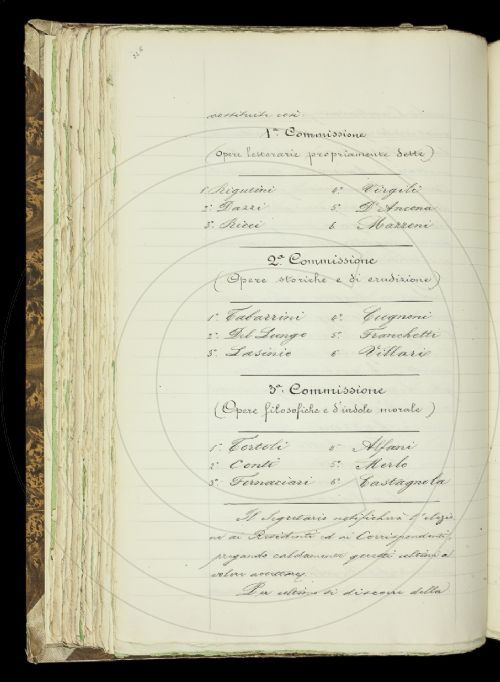 sostituite così:
1ª Commissione
(Opere letterarie propriamente dette)
1º Rigutini 4º Virgili
2º Dazzi 5º D'Ancona
3º Ricci 6 Mazzoni
2ª Commissione
(Opere storiche e di erudizione)
1º Tabarrini 4º Cugnoni
2º Del Lungo 5º Franchetti
3º Lasinio 6 Villari
3ª Commissione
(Opere filosofiche e d'indole morale)
1º Tortoli 4º Alfani
2º Conti 5º Merlo
3º Fornaciari 6º Castagnola
Il Segretario notificherà l'elezio
ne ai Residenti ed ai Corrispondenti,
pregando caldamente questi ultimi a
voler accettare.
Per ultimo si discorre della